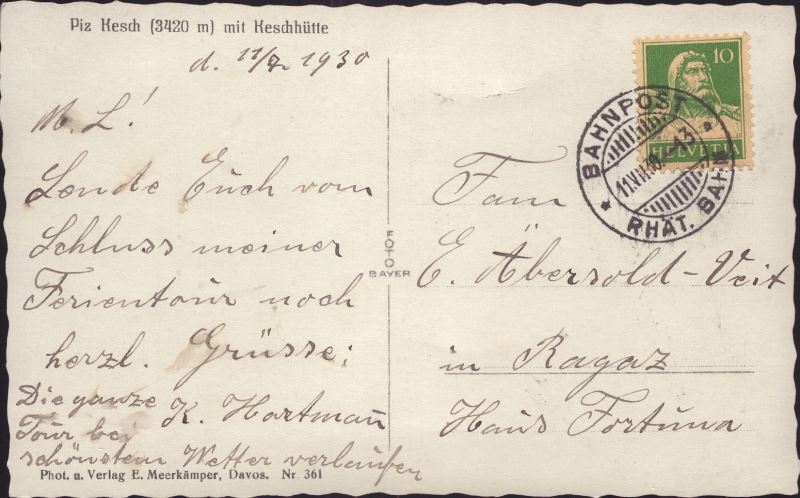 Piz Kesch (3420 m) mit Keschhütte
d. 11/7. 1930
M. L!
Sende Euch vom
Schluss meiner
Ferientour noch
herzl. Grüsse;
K. Hartmann
Die ganze
Tour bei
schönstem Wetter verlaufen
Phot. u. Verlag E. Meerkämper, Davos. Nr. 361
FOTO
BAYER
10
HELVETIA
BAHNPOST
11.VII.30.-13
RHÄT. BAHN
Fam
E. Äbersold-Veit
in Ragaz
Haus Fortuna